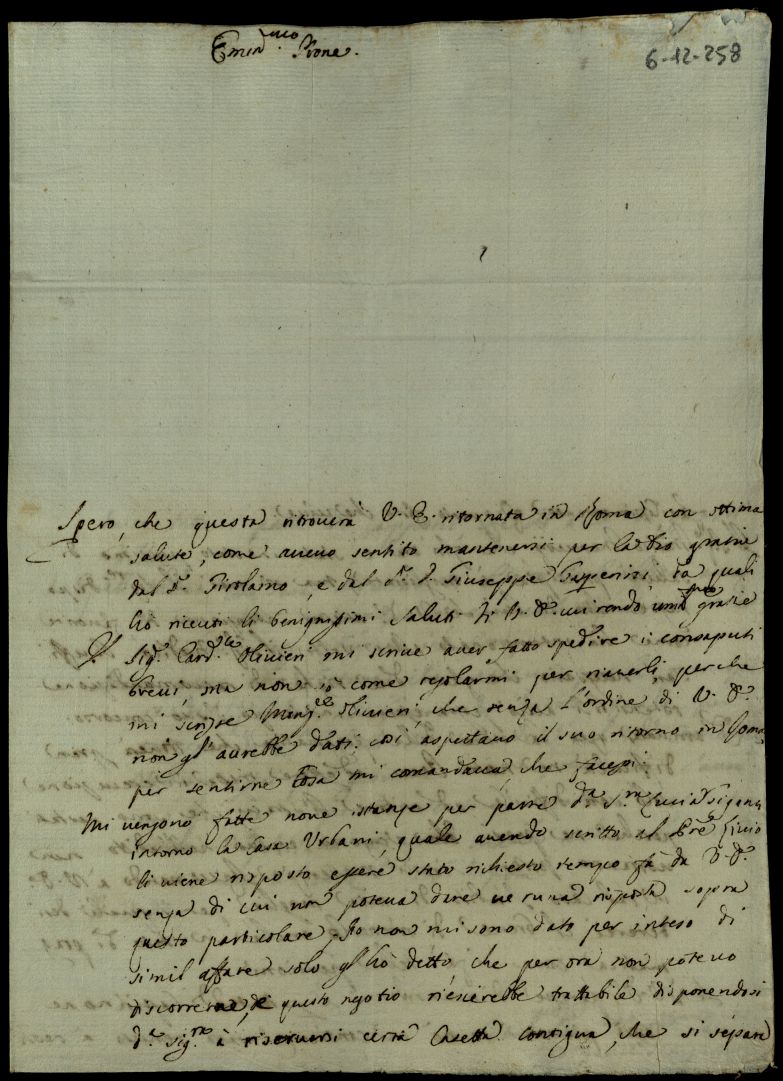 Emin.mo Prone.
6-12-258
Spero, che questa ritrouerà V. E. ritornata in Roma con ottima
salute, come aueuo sentito mantenersi per la Dio gratia
dal Sr. Girolamo, e dal Sr. D. Giuseppe da quali
hò riceuti li benignissimi saluti di V. E. cui rendo um.me grazie
Il Sig.r Card.le Oliuieri mi scriue auer fatto spedire i consaputi
breui, ma non sò come regolarmi per riauerli, perche
mi scrisse Monsg.re Oliuieri, che senza l'ordine di V. E.
non gl'aurebbe dati: così aspettauo il suo ritorno in Roma
per sentirne cosa mi comandaua, che facessi.
Mi uengono fatte noue istanze per parte d.a S.ra Lucia
intorno la Casa Urbani, quale auendo scritto al Pre. Liuio
li uiene risposto essere stato richiesto tempo fà da V. E.
senza di cui non poteua dare ueruna risposta sopra
questo particolare, Io non mi sono dato per inteso di
simil affare solo gl'hò detto, che per ora non poteuo
discorrerne, e questo negotio riescirebbe trattabile disponendosi
d.a Sig.ra à riseruarsi certa Casetta contigua, che si separa